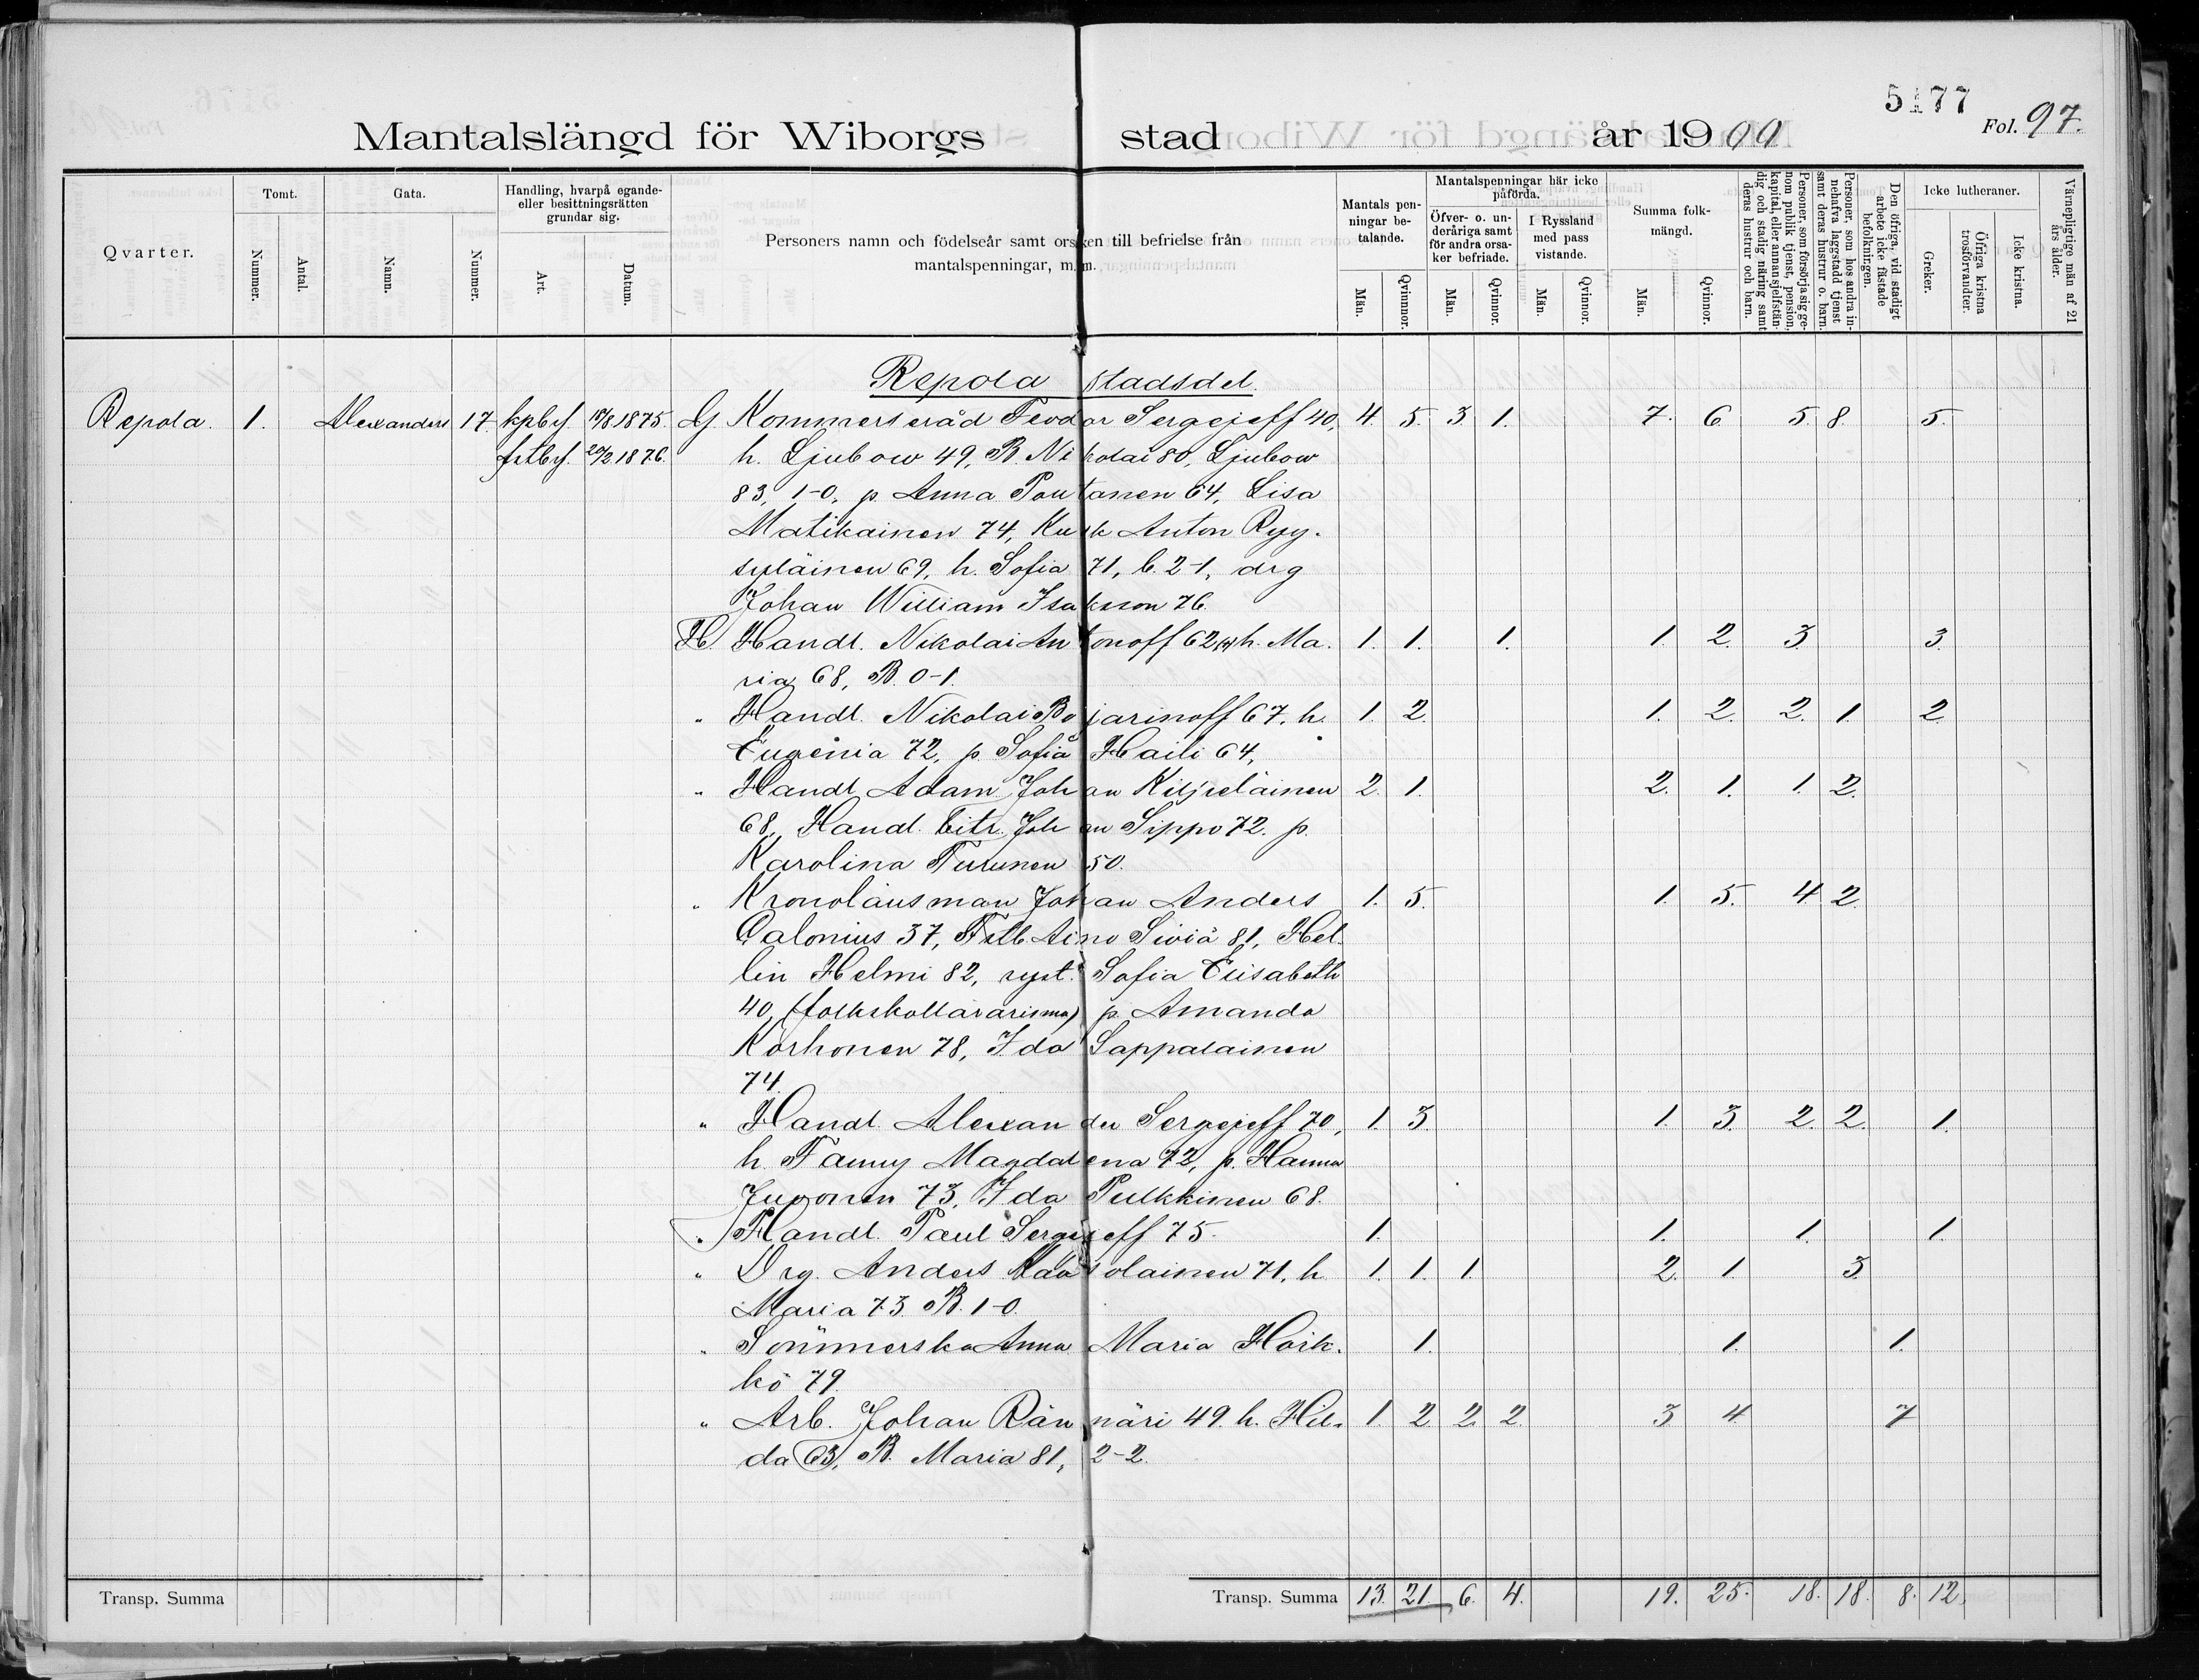 5177
Fol. 97.
Mantalslängd för Wiborgs stad år 1900
Qvarter.
Tomt.
Nummer.
Antal.
Gata.
Namn.
Nummer.
Handling, hvarpå egande-
eller besittningsrätten
grundar sig.
Art.
Datum.
Personers namn och födelseår samt orsaken till befrielse från
mantalspenningar, m. m.
Mantals pen-
ningar be-
talande.
Män.
Qvinnor.
Mantalspenningar här icke
påförda.
Öfver- o. un-
deråriga samt
för andra orsa-
ker befriade.
Män.
Qvinnor.
I Ryssland
med pass
vistande.
Män.
Qvinnor.
Summa folk-
mängd.
Män.
Qvinnor.
Personer, som försörja sig ge-
nom publik tjenst, pension,
kapital, eller annan sjelfstän-
dig och stadig näring samt
deras hustrur och barn.
Personer, som hos andra in-
nehafva laggstadd tjenst
samt deras hustrur o. barn.
Den öfriga, vid stadigt
arbete icke fästade
befolkningen.
Icke lutheraner.
Greker.
Öfriga kristna
trosförvandter.
Icke kristna.
Värnepligtige män af 21
års ålder.
Repola stadsdel.
Repola. 1. Alexanders 17. kpbf. 18/8 1875. G. Kommerseråd Feodor Sergejeff 40, 4. 5. 3. 1. 7. 6. 5. 8. 5.
fstbf. 20/2 1876. h. Ljubow 49, B. Nikolai 80, Ljubow
83, 1-0, p. Anna Poutanen 64, Lisa
Matikainen 74, Kusk Anton Ryy-
syläinen 69, h. Sofia 71, b. 2-1, drg
Johan William Isaksson 76.
H. Handl. Nikolai Antonoff 62, h. Ma- 1. 1. 1. 1. 2. 3. 3.
ria 68, B. 0-1.
" Handl. Nikolai Bojarinoff 67, h. 1. 2. 1. 2. 2. 1. 2.
Eugenia 72, p. Sofia Haili 64,
" Handl. Adam Johan Kiljeläinen 2. 1. 2. 1. 1. 2.
68, Handl. bitr. Johan Sippo 72. p.
Karolina Turunen 50.
" Kronolänsman Johan Anders 1. 5. 1. 5. 4 2.
Calonius 37, Aino Siviä 81, Hel-
lin Helmi 82, syst. Sofia Elisabeth
40, (folkskollärarinna) p. Amanda
Korhonen 78, Ida Lappalainen
74.
" Handl. Alexander Sergejeff 70, 1. 3. 1. 3. 2. 2. 1.
h. Fanny Magdalena 72, p. Hanna
Juvonen 73, Ida Pulkkinen 68.
" Handl. Paul Sergejeff 75. 1. 1. 1. 1.
" Drg. Anders 71, h. 1. 1. 1. 2. 1. 3.
Maria 73 B. 1-0.
" Sömmerska Anna Maria Hörk- 1. 1. 1.
kö 79.
" Arb. Johan Rännäri 49. h. Hil- 1. 2 2 2. 3 4. 7
da 63, B. Maria 81, 2-2.
Transp. Summa
Transp. Summa 13. 21. 6. 4. 19. 25. 18. 18. 8. 12.